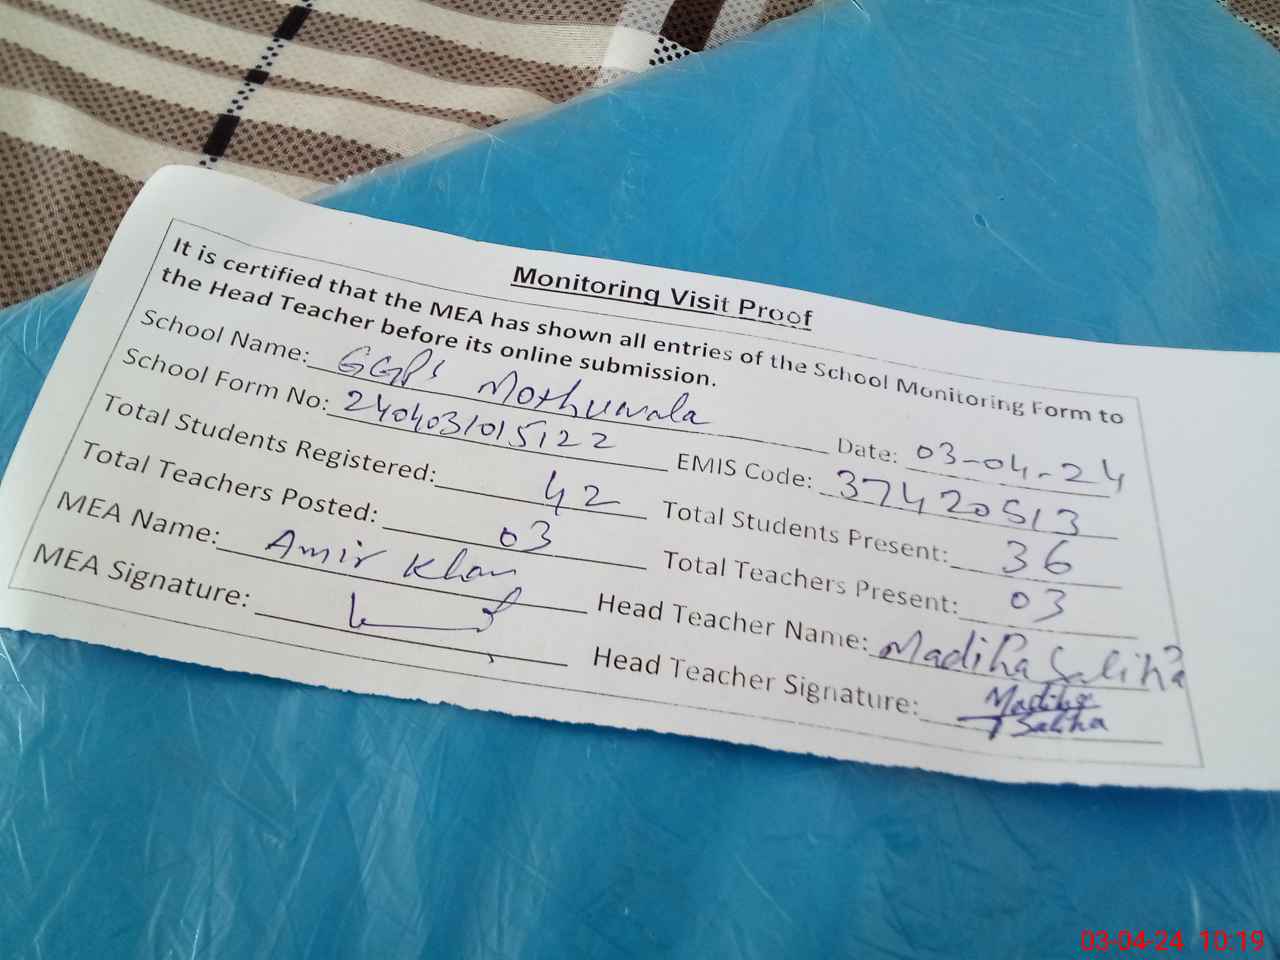 Monitoring Visit Proof
It is certified that the MEA has shown all entries of the School Monitoring Form to
the Head Teacher before its online submission.
School Name: GGPS Mothuwala Date: 03-04-24
School Form No: 2404031015122 EMIS Code: 37420513
Total Students Registered: 42 Total Students Present: 36
Total Teachers Posted: 03 Total Teachers Present: 03
MEA Name: Amir Khan Head Teacher Name: Madiha Saliha
MEA Signature: Head Teacher Signature: Madiha
Saliha
03-04-24 10:19